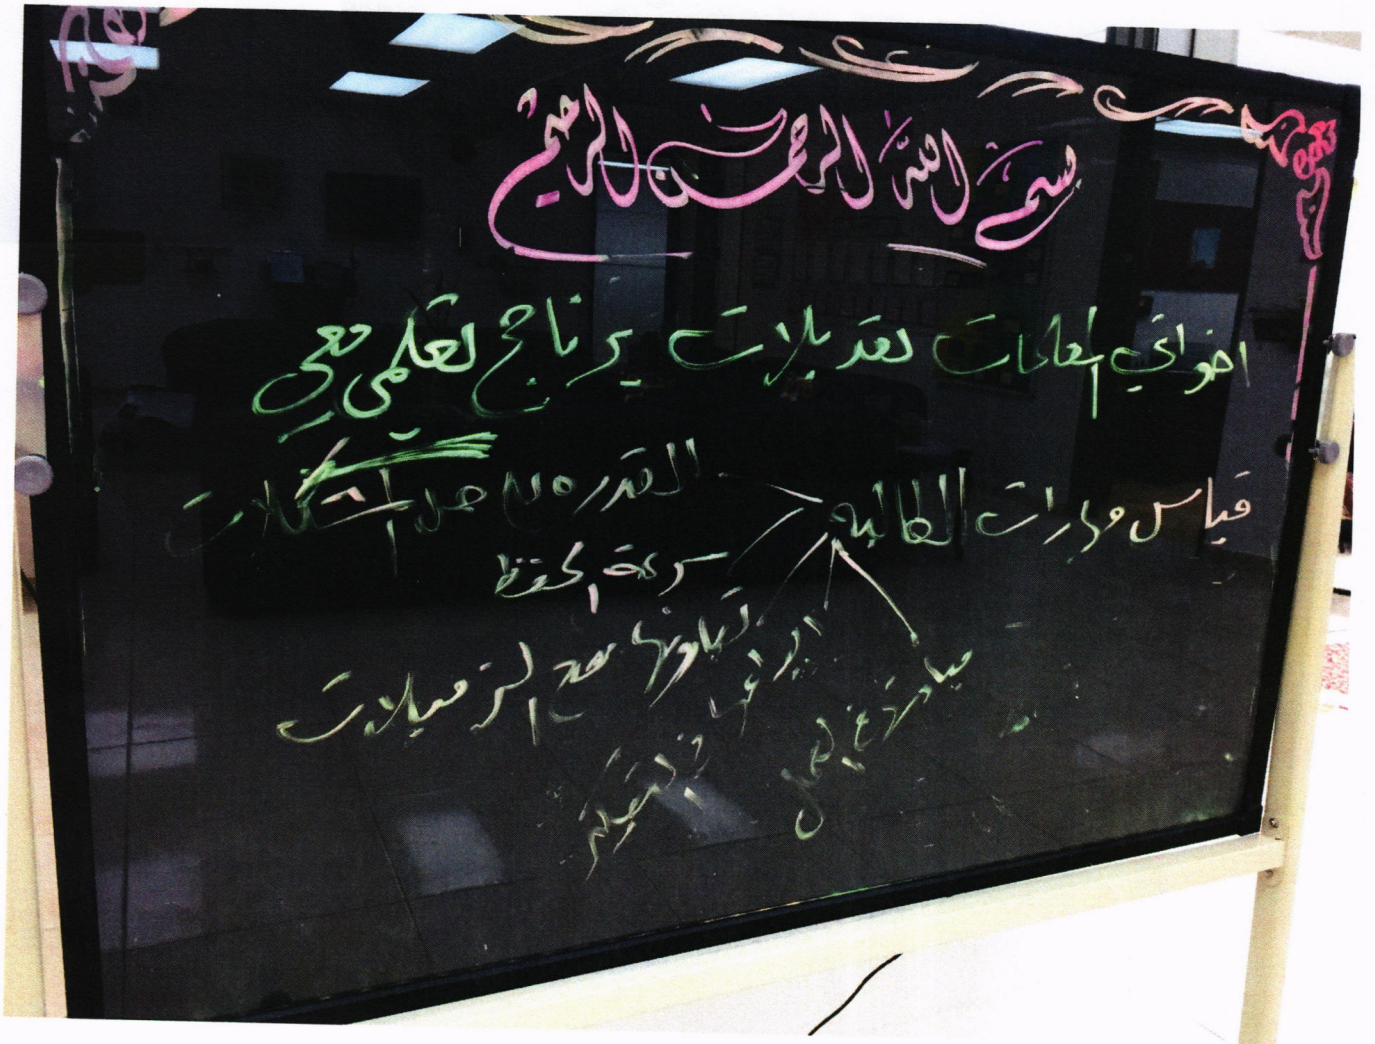 بسم الله الرحمن الرحيم
اخواتي المعلمات تعديلات برنامج تعلمي معي
قياس مهارات الطالبه
القدره على حل المشكلات
سرعة الحفظ
تعاونها مع الزميلات
في التفكير